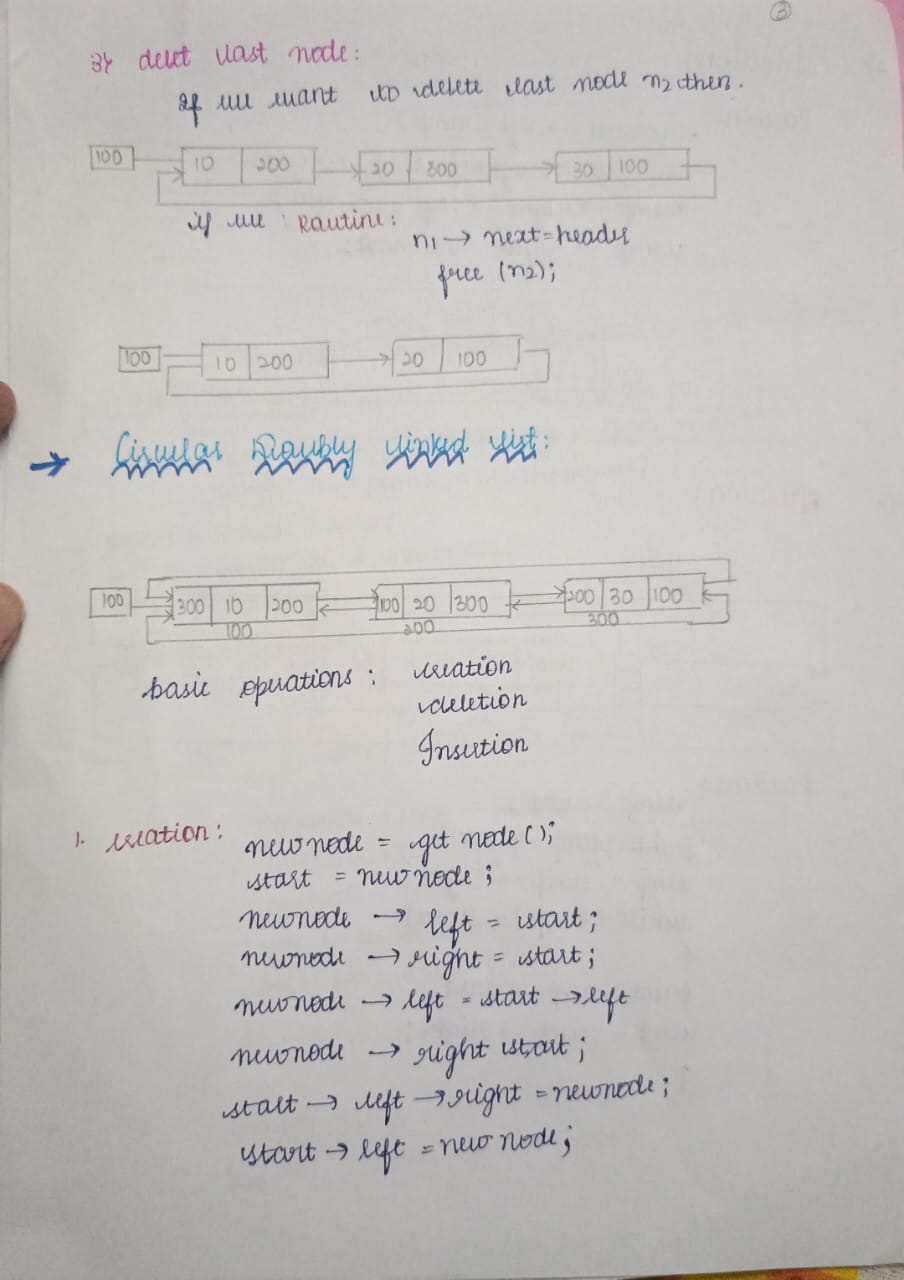 ③
3) delet last node:
If we want to delete last node n2 then.
100 10 200 20 300 30 100
if we : Routine:
n1 → next = header
free (n2);
100 10 200 20 100
→ Circular Doubly linked list:
100 300 10 200 100 20 300 200 30 100
100 200 300
basic operations : creation
deletion
Insertion
1. creation: newnode = get node();
start = newnode ;
newnode → left = start;
newnode → right = start;
newnode → left = start → left
newnode → right start;
start → left → right = newnode;
start → left = new node;